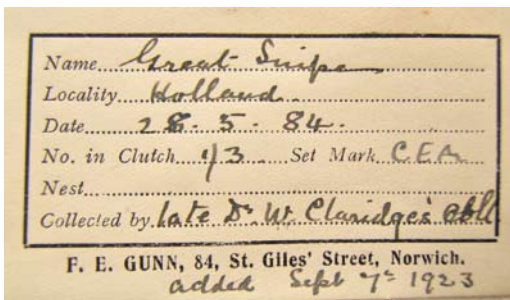 Name Great Snipe
Locality Holland.
Date 28. 5. 84.
No. in Clutch 1/3 Set Mark C.E.A.
Nest
Collected by late Dr W. Claridge's Coll
F. E. GUNN, 84, St. Giles' Street, Norwich.
added Sept 7th 1923